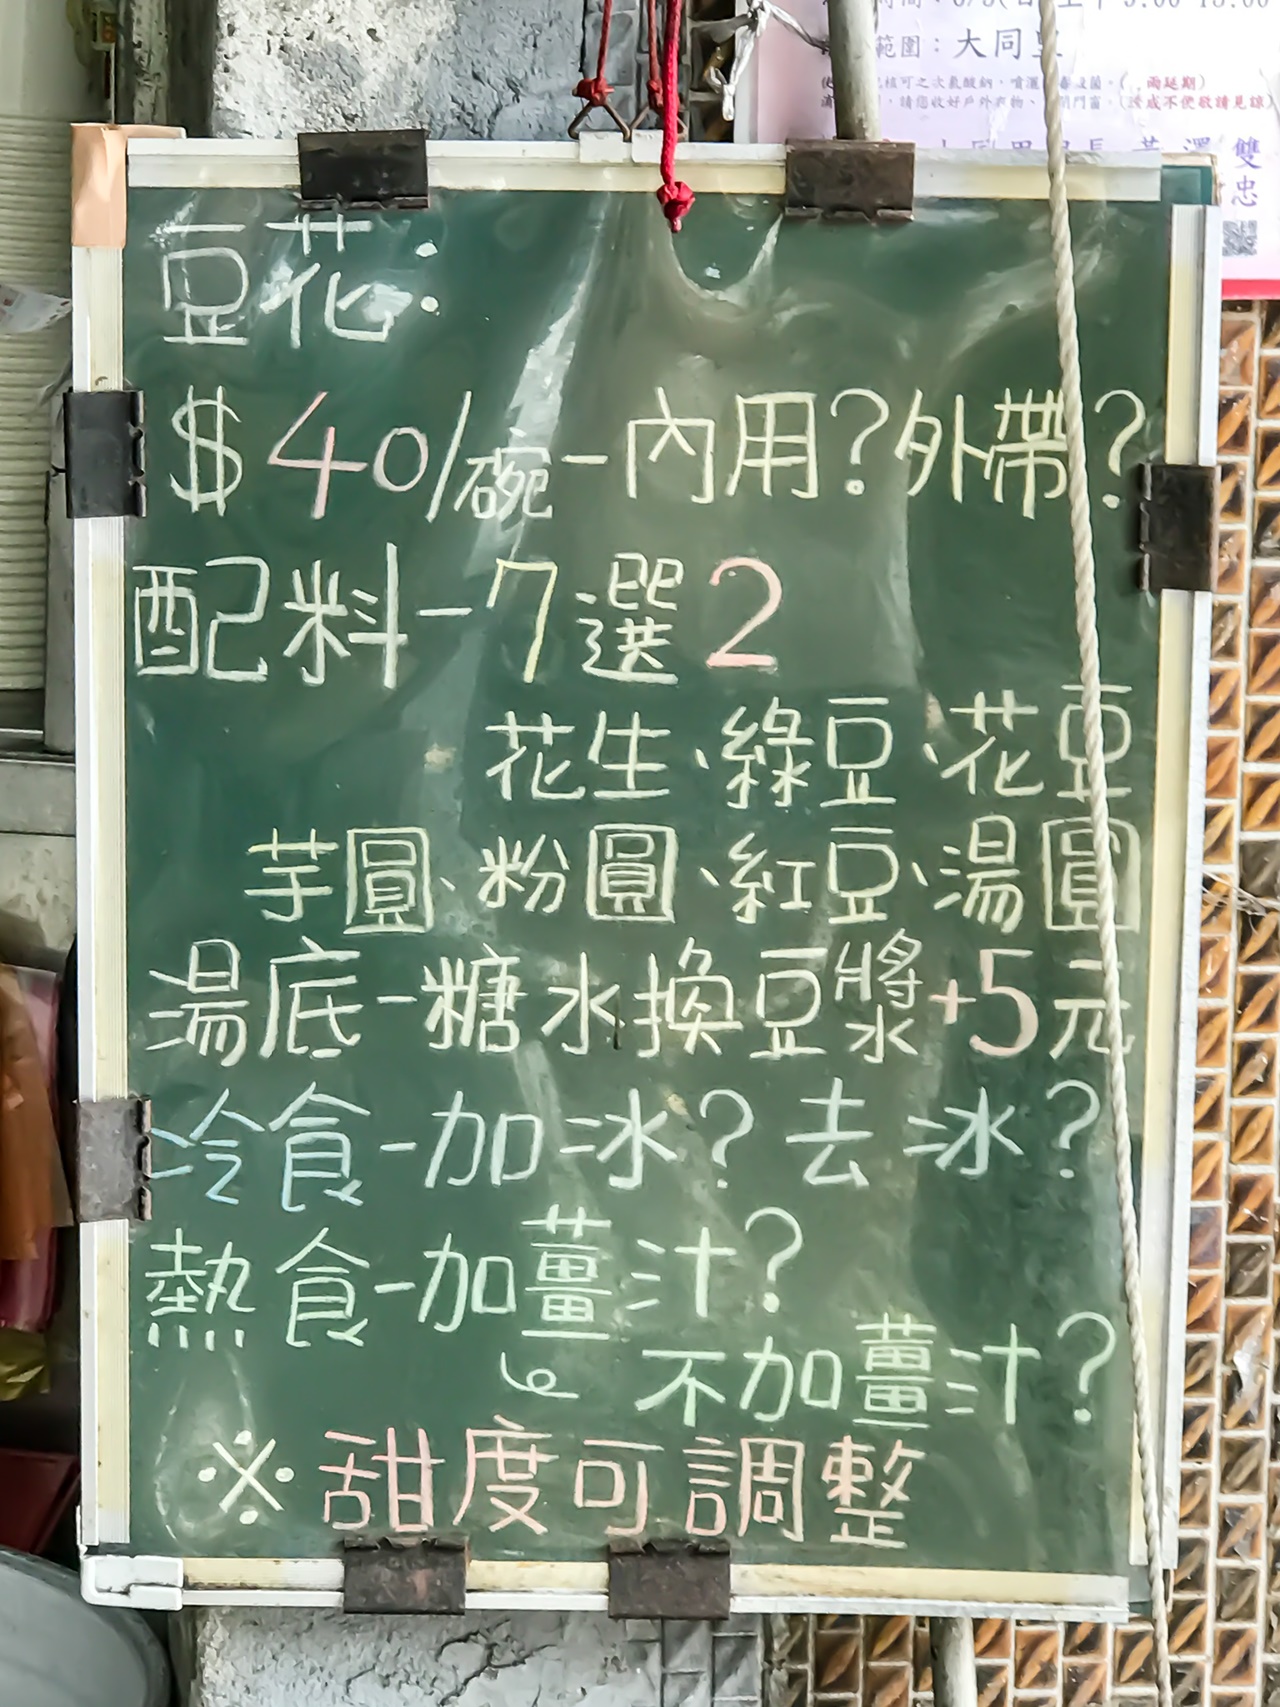 範圍：大同
雙
忠
豆花：
$40/碗-內用?外帶?
配料-7選2
花生、綠豆、花豆
芋圓、粉圓、紅豆、湯圓
湯底-糖水換豆漿+5元
冷食-加冰?去冰?
熱食-加薑汁?
不加薑汁?
※甜度可調整